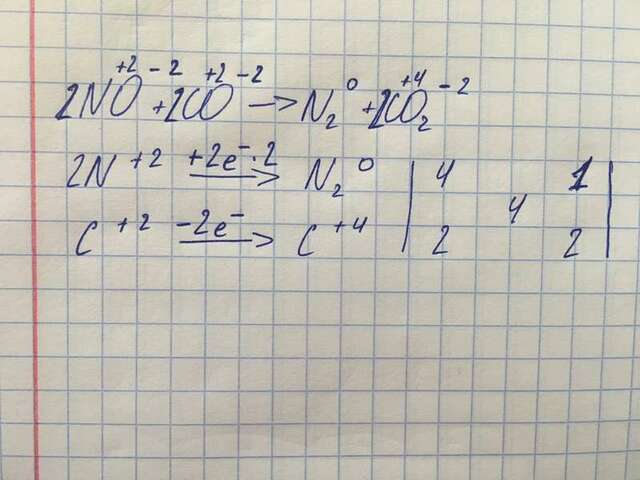 2N⁺²O⁻² + 2C⁺²O⁻² → N₂⁰ + 2C⁺⁴O₂⁻²
2N +2 +2e⁻·2 → N₂⁰ | 4 1 |
4
C +2 -2e⁻ → C +4 | 2 2 |